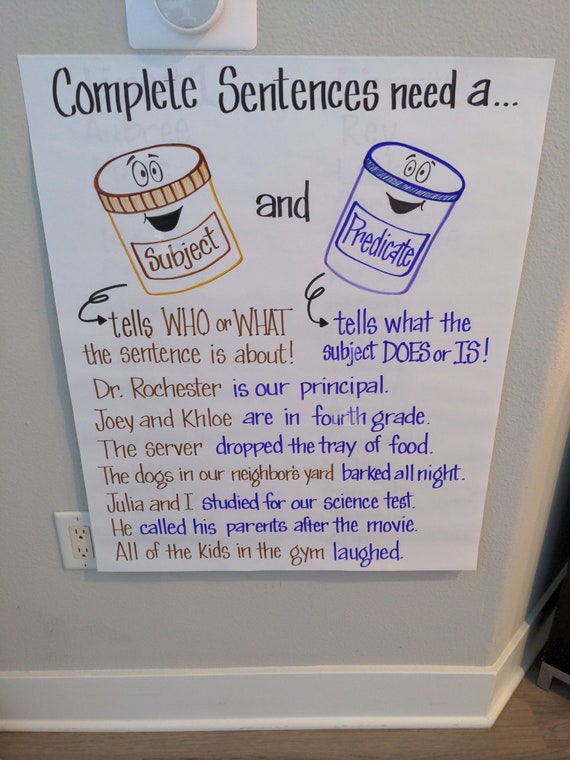 Complete Sentences need a...
Subject
and
Predicate
tells WHO or WHAT
the sentence is about!
tells what the
subject DOES or IS!
Dr. Rochester is our principal.
Joey and Khloe are in fourth grade.
The server dropped the tray of food.
The dogs in our neighbor's yard barked all night.
Julia and I studied for our science test.
He called his parents after the movie.
All of the kids in the gym laughed.